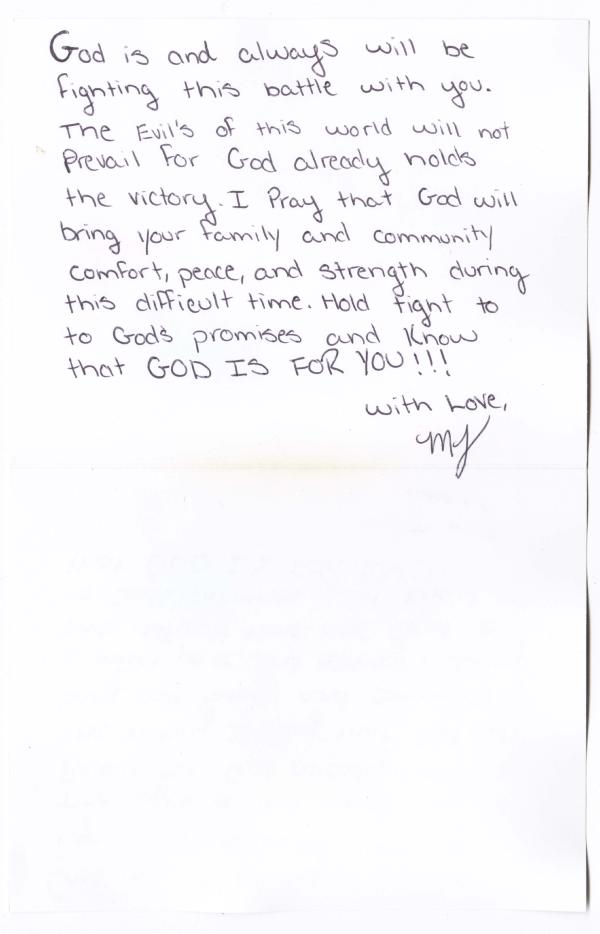 God is and always will be
fighting this battle with you.
The Evil's of this world will not
Prevail for God already holds
the victory. I Pray that God will
bring your family and community
comfort, peace, and strength during
this difficult time. Hold tight to
to God's promises and know
that GOD IS FOR YOU!!!
with Love,
MJ